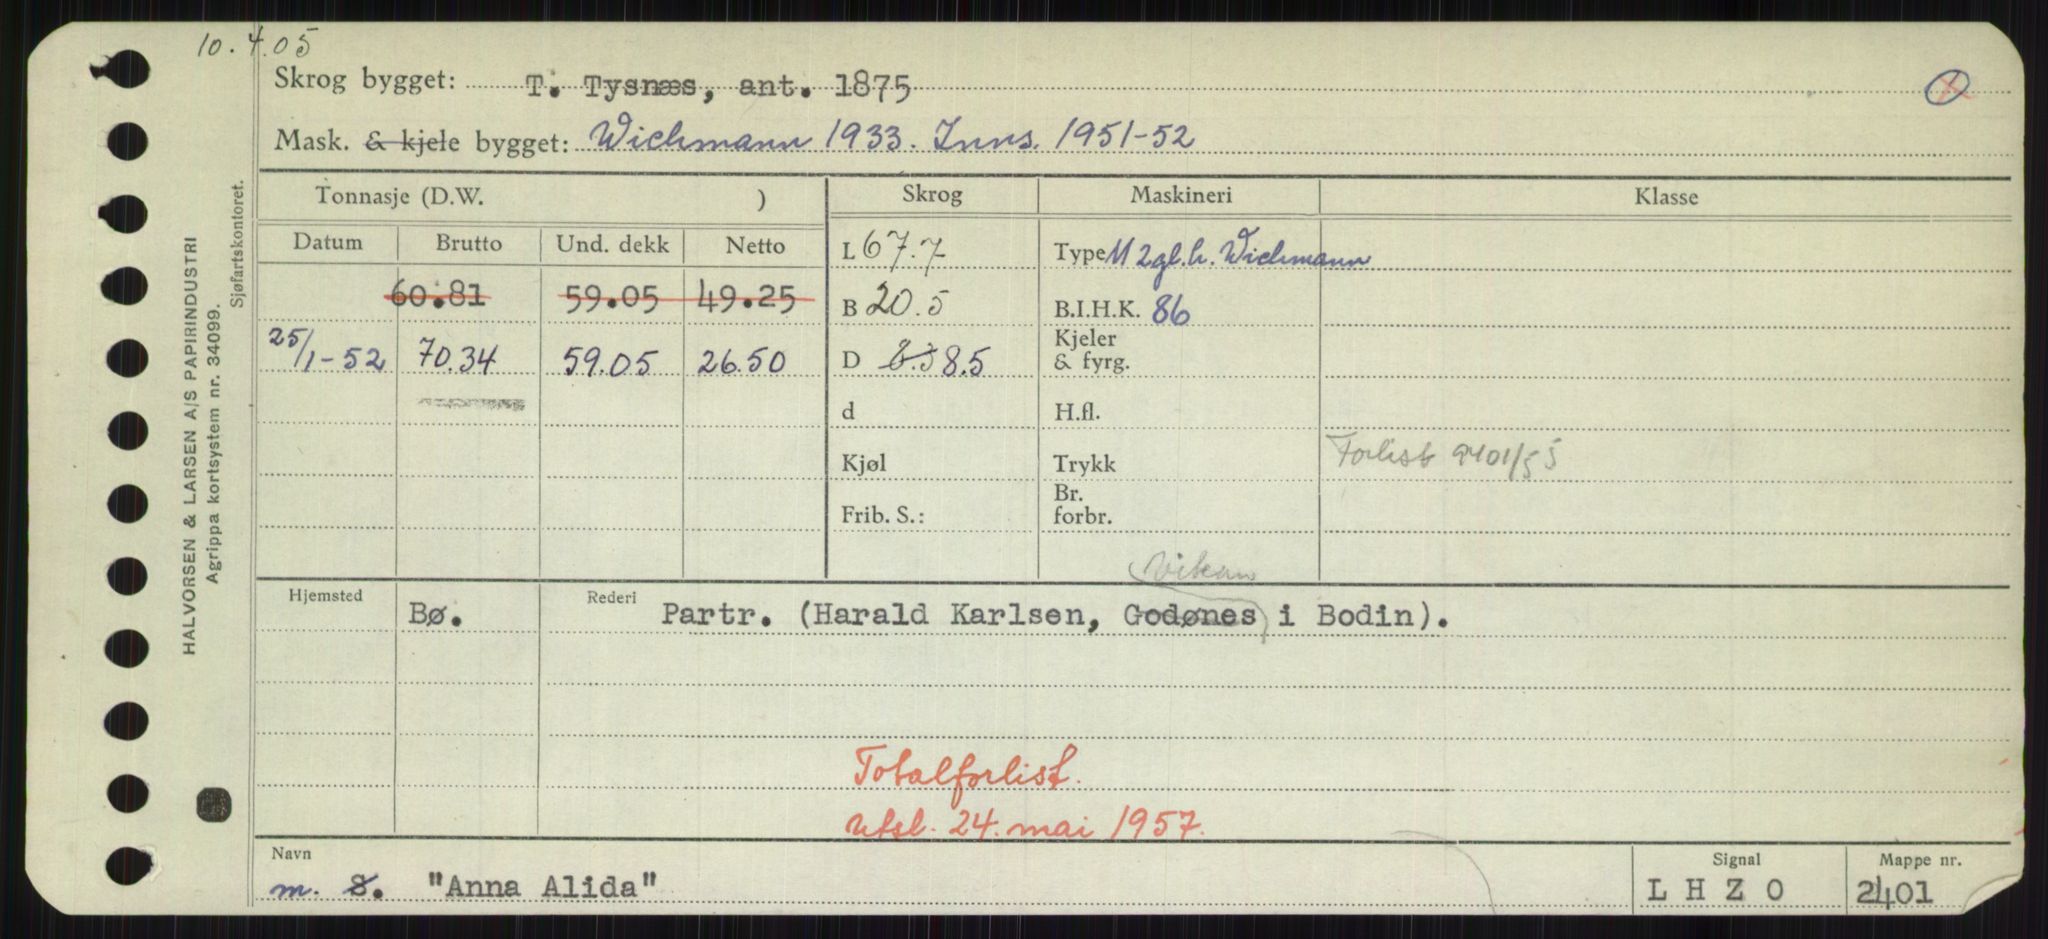 10.4.05
Skrog bygget: T. Tysnæs, ant. 1875
Mask. & kjele bygget: Wichmann 1933. Inns. 1951-52
Tonnasje (D.W. ) Skrog Maskineri Klasse
Datum Brutto Und. dekk Netto
L 67.7 Type M 2gl.h. Wichmann
60.81 59.05 49.25 B 20.5 B.I.H.K. 86
25/1-52 70.34 59.05 26.50 D 8.3 8.5 Kjeler & fyrg.
d H.fl.
Kjøl Trykk Forlist 2401/55
Frib. S.: Br. forbr.
Hjemsted Bø. Rederi Partr. (Harald Karlsen, Godønes i Bodin).
Totalforlist.
Utsl. 24. mai 1957.
Navn Signal Mappe nr.
m. s. "Anna Alida" L H Z O 2401
HALVORSEN & LARSEN A/S PAPIRINDUSTRI
Agrippa kortsystem nr. 34099.
Sjøfartskontoret.